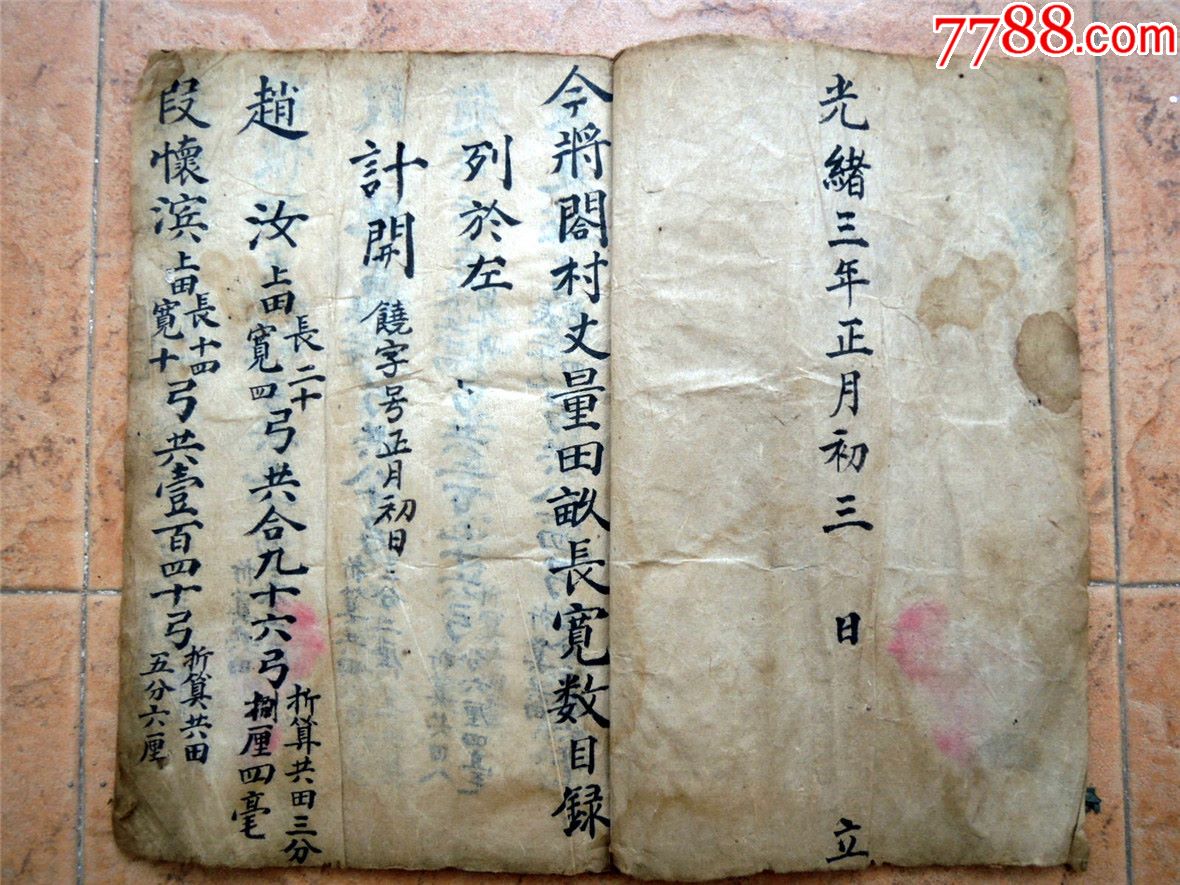 7788.com
光緒三年正月初三日立
今將閤村丈量田畝長寬數目錄
列於左
計開 饒字号正月初日
趙汝 上田 長二十 寬四 弓共合九十六弓 折算共田三分
捌厘四毫
段懷滨 上田 長十四 寬十 弓共壹百四十弓 折算共田
五分六厘